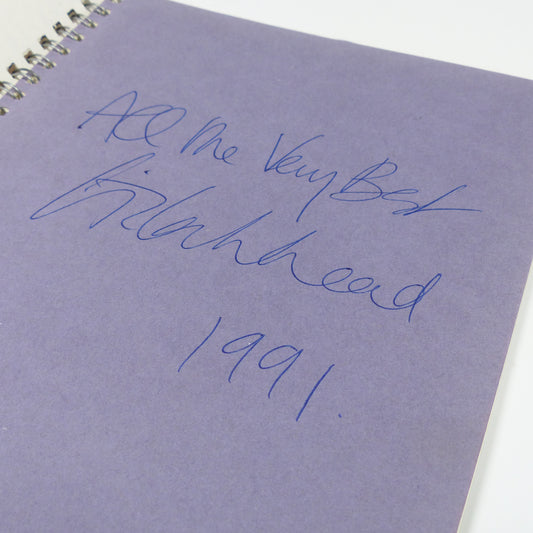 All the Very Best
Liz Lochhead
1991.